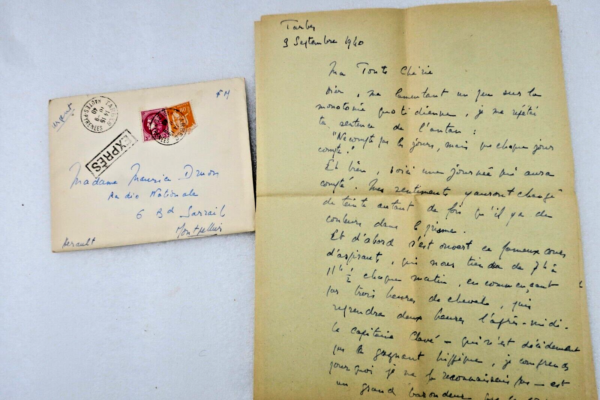 urgent
F M
EXPRÈS
Madame Maurice Druon
Radio Nationale
6 Bd Sarrail
Montpellier
Herault
Tarbes
3 Septembre 1940
Ma Toute Chérie
Hier, me lamentant un peu sur la
monotonie quotidienne, je me répétai
la sentence de l'auteur :
"Ne compte pas les jours, mais que chaque jour
compte".
Et bien, voici une journée qui aura
compté. Mes sentiments y auront changé
de teinte autant de fois qu'il y a de
couleurs dans le prisme.
Et d'abord s'est ouvert ce fameux cours
d'aspirant, qui nous tiendra de 7h à
11h ½ chaque matin, en commençant
par trois heures de cheval, puis
reprendra deux heures l'après-midi.
Le capitaine Clavé – qui n'est décidément
pas le gagnant hippique, je comprends
pourquoi je ne le reconnaissais pas – est
un grand